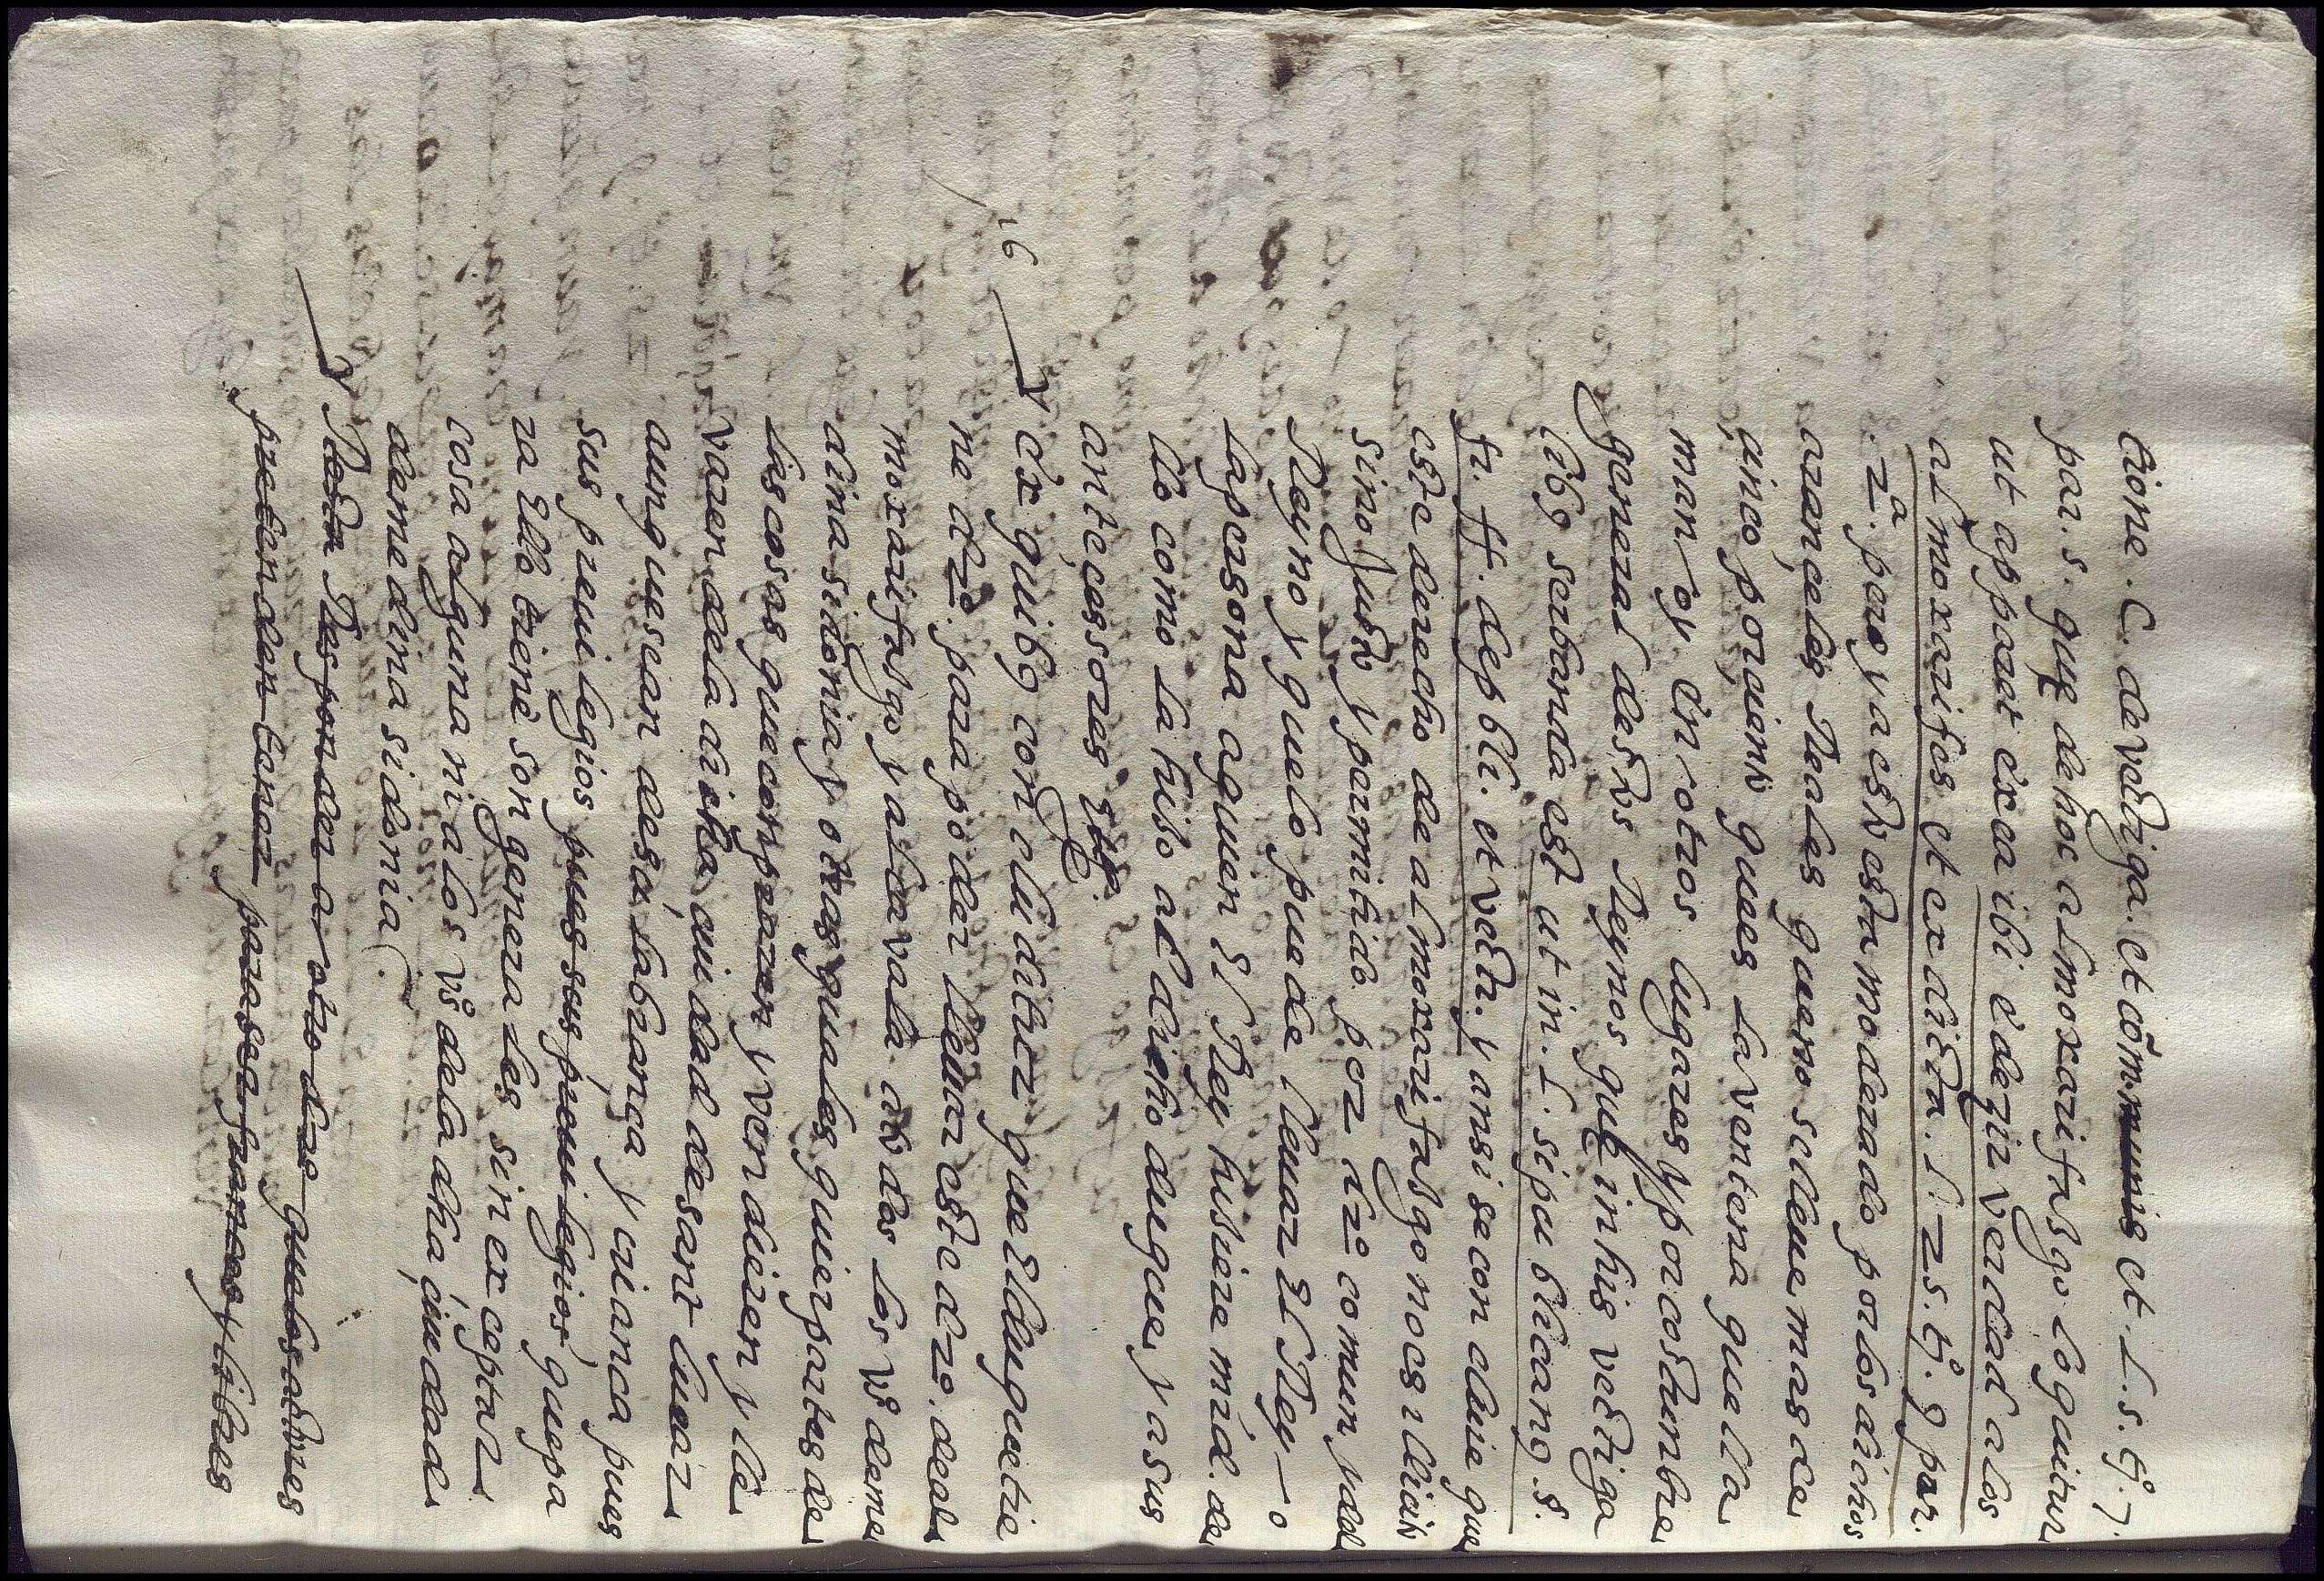 tione. C. de vectiga. et cōmmunis et. l. 5. tº. 7.
par. 5. que de hoc almoxarifalgo loquitur
ut apparet ex ea ibi e dezir verdad a los
almoxarifes et ex dicta. l. 25. tº. 9 par.
.2ª. pero ya esta esta moderado por los dichos
aranceles Reales que no se lleue mas de
cinco por ciento que es la ventena que lla
man oy en otros lugares y por costumbre
general destos Reynos que in his vectiga
libus seruanda est ut in. l. si publicano. §.
fi. ff. de publi. et vecti. y ansi se concluie que
este derecho de almoxarifalgo no es illicito
sino justo y permitido por drº comun y del
Reyno y que lo puede lleuar el Rey –o
la persona a quien el Rey hubiere mrd. de
llo como la hiso al dicho duque y a sus
antecessores etc.
16 Y ex quibus concluditur que el duque tie
ne drº. para poder lleuar este drº. de al
moxarifalgo y alcavala a los vºs de me
dina sidonia y otras quales quier partes de
las cosas que conpraren y vendieren y lle
varen de la dicha ciudad de sant lucar
aunque sean de su labrança y criança pues
sus preuilegios pues sus preuilegios que pa
ra ello tiene son generales sin exceptar
cosa alguna ni a los vºs de la dha ciudad
de medina sidonia.
Y Resta Responder a otro drº que los actores
pretenden tener para ser francos y libres